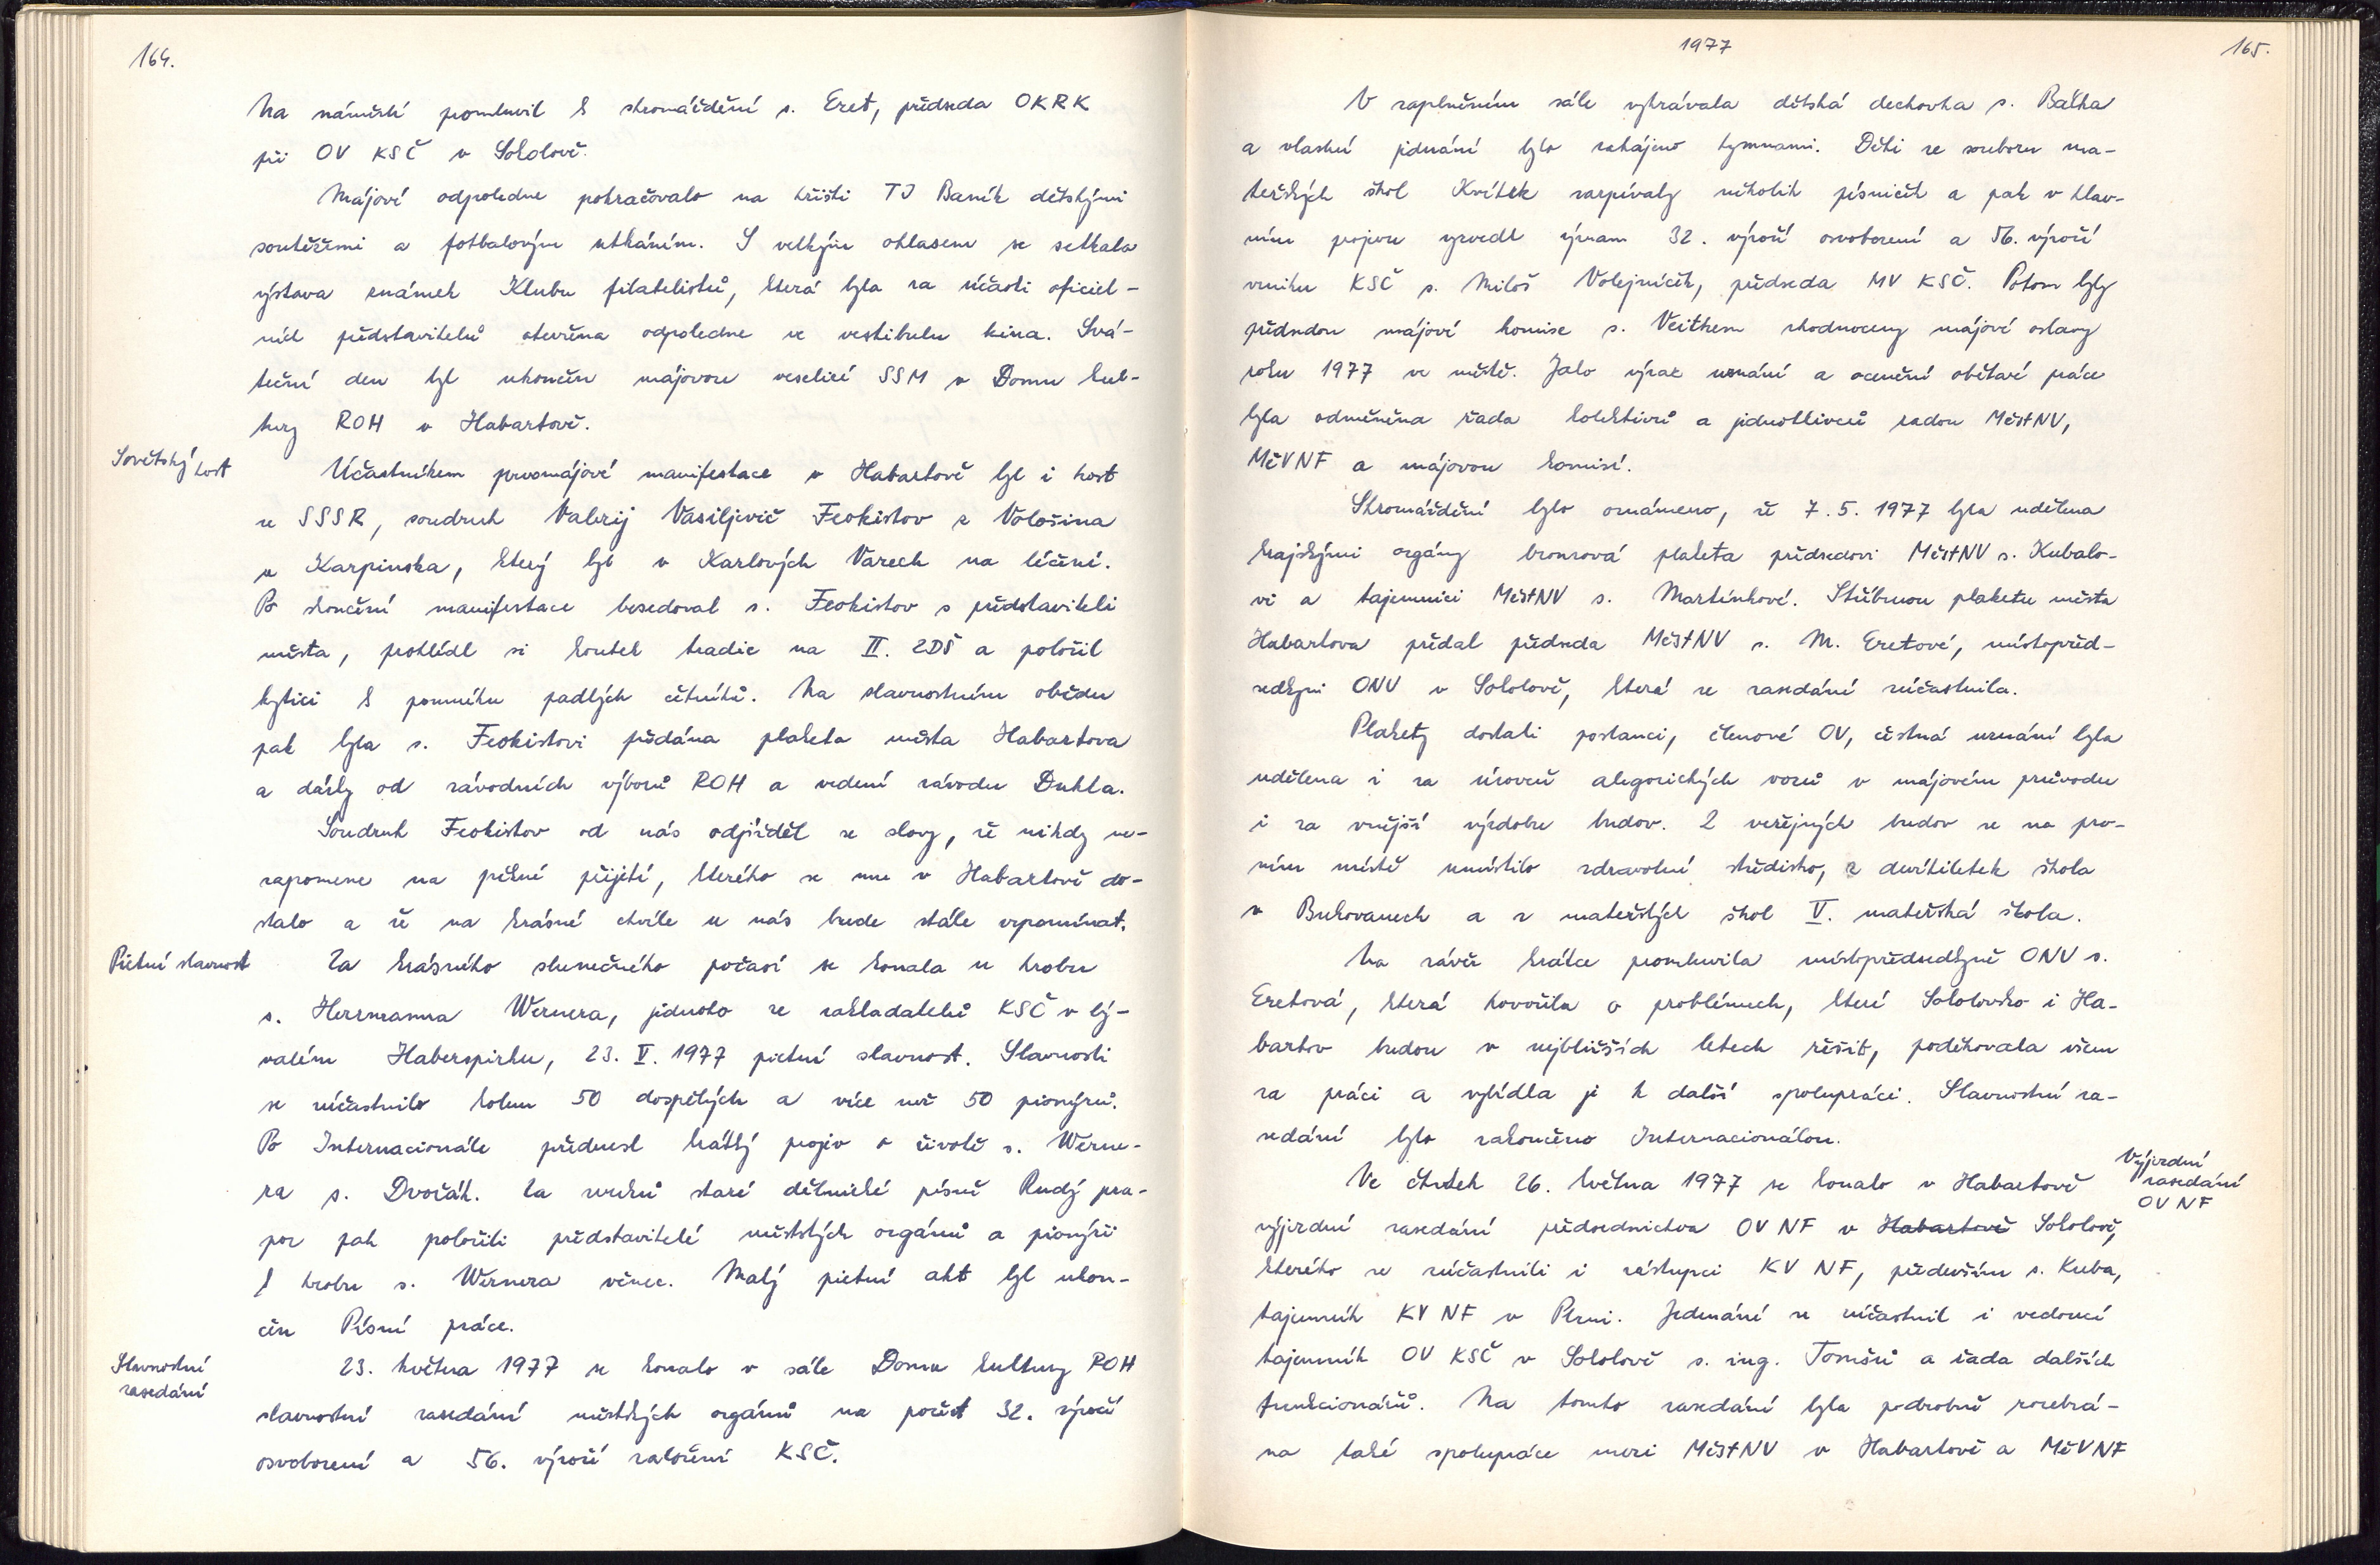 164.
Na náměstí promluvil k shromáždění s. Eret, předseda OKRK
při OV KSČ v Sokolově.
Májové odpoledne pokračovalo na hřišti TJ Baník dětskými
soutěžemi a fotbalovým utkáním. S velkým ohlasem se setkala
výstava známek Klubu filatelistů, která byla za účasti oficiel-
ních představitelů otevřena odpoledne ve vestibulu kina. Svá-
teční den byl ukončen májovou veselicí SSM v Domu kul-
tury ROH v Habartově.
Sovětský host
Účastníkem prvomájové manifestace v Habartově byl i host
ze SSSR, soudruh Valerij Vasiljevič Feokistov z Vološina
u Karpinska, který byl v Karlových Varech na léčení.
Po skončení manifestace besedoval s. Feokistov s představiteli
města, prohlédl si koutek tradic na II. ZDŠ a položil
kytici k pomníku padlých četníků. Na slavnostním obědu
pak byla s. Feokistovi předána plaketa města Habartova
a dárky od závodních výborů ROH a vedení závodu Dukla.
Soudruh Feokistov od nás odjížděl se slovy, že nikdy ne-
zapomene na pěkné přijetí, kterého se mu v Habartově do-
stalo a že na krásné chvíle u nás bude stále vzpomínat.
Pietní slavnost
Za krásného slunečného počasí se konala u hrobu
s. Herrmanna Wernera, jednoho ze zakladatelů KSČ v bý-
valém Haberspirku, 23. V. 1977 pietní slavnost. Slavnosti
se zúčastnilo kolem 50 dospělých a více než 50 pionýrů.
Po Internacionále přednesl krátký projev o životě s. Werne-
ra s. Dvořák. Za zvuků staré dělnické písně Rudý pra-
por pak položili představitelé městských orgánů a pionýři
k hrobu s. Wernera věnec. Malý pietní akt byl ukon-
čen Písní práce.
Slavnostní
zasedání
23. května 1977 se konalo v sále Domu kultury ROH
slavnostní zasedání městských orgánů na počest 32. výročí
osvobození a 56. výročí založení KSČ.
1977
165.
V zaplněném sále vyhrávala dětská dechovka s. Baťka
a vlastní jednání bylo zahájeno hymnami. Děti ze souboru ma-
teřských škol Kvítek zazpívaly několik písniček a pak v hlav-
ním projevu vyzvedl význam 32. výročí osvobození a 56. výročí
vzniku KSČ s. Miloš Volejníček, předseda MV KSČ. Potom byly
předsedou májové komise s. Veithem zhodnoceny májové oslavy
roku 1977 ve městě. Jako výraz uznání a ocenění obětavé práce
byla odměněna řada kolektivů a jednotlivců radou MěstNV,
MěVNF a májovou komisí.
Shromáždění bylo oznámeno, že 7. 5. 1977 byla udělena
krajskými orgány bronzová plaketa předsedovi MěstNV s. Kubalo-
vi a tajemnici MěstNV s. Martínkové. Stříbrnou plaketu města
Habartova předal předseda MěstNV s. M. Eretové, místopřed-
sedkyni ONV v Sokolově, která se zasedání zúčastnila.
Plakety dostali poslanci, členové OV, čestná uznání byla
udělena i za úroveň alegorických vozů v májovém průvodu
i za vnější výzdobu budov. Z veřejných budov se na prv-
ním místě umístilo zdravotní středisko, z devítiletek škola
v Bukovanech a z mateřských škol V. mateřská škola.
Na závěr krátce promluvila místopředsedkyně ONV s.
Eretová, která hovořila o problémech, které Sokolovsko i Ha-
bartov budou v nejbližších letech řešit, poděkovala všem
za práci a vybídla je k další spolupráci. Slavnostní za-
sedání bylo zakončeno Internacionálou.
Výjezdní
zasedání
OV NF
Ve čtvrtek 26. května 1977 se konalo v Habartově
výjezdní zasedání předsednictva OV NF v Habartově Sokolově,
kterého se zúčastnili i zástupci KV NF, především s. Kuba,
tajemník KV NF v Plzni. Jednání se zúčastnil i vedoucí
tajemník OV KSČ v Sokolově s. ing. Tomšů a řada dalších
funkcionářů. Na tomto zasedání byla podrobně rozebrá-
na také spolupráce mezi MěstNV v Habartově a MěVNF